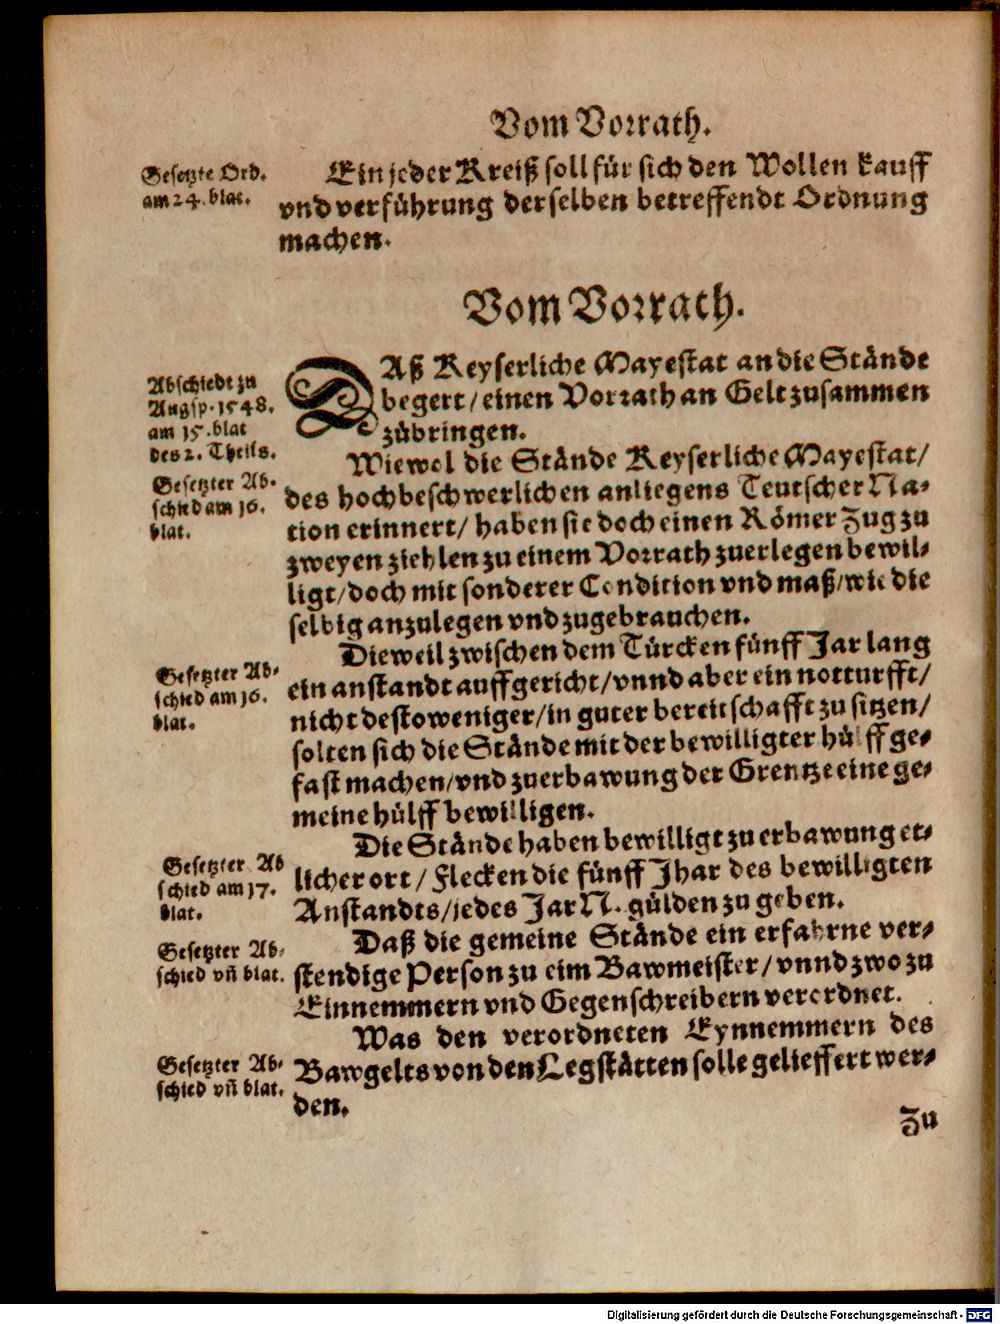 Vom Vorrath.
Gesetzte Ord.
am 24. blat.
Ein jeder Kreiß soll für sich den Wollen kauff
vnd verführung derselben betreffendt Ordnung
machen.
Vom Vorrath.
Abschiedt zu
Augsp. 1548.
am 15. blat
des 2. Theils.
DAß Keyserliche Mayestat an die Stände
begert / einen Vorrath an Gelt zusammen
zübringen.
Gesetzter Ab-
schied am 16.
blat.
Wiewol die Stände Keyserliche Mayestat /
des hochbeschwerlichen anliegens Teutscher Na-
tion erinnert / haben sie doch einen Römer Zug zu
zweyen ziehlen zu einem Vorrath zuerlegen bewil-
ligt / doch mit sonderer Condition vnd maß / wie die
selbig anzulegen vnd zugebrauchen.
Gesetzter Ab-
schied am 16.
blat.
Dieweil zwischen dem Türcken fünff Jar lang
ein anstandt auffgericht / vnnd aber ein notturfft /
nicht destoweniger / in guter bereitschafft zu sitzen /
solten sich die Stände mit der bewilligter hülff ge-
fast machen / vnd zuerbawung der Grentze eine ge-
meine hülff bewilligen.
Gesetzter Ab
schied am 17.
blat.
Die Stände haben bewilligt zu erbawung et-
licher ort / Flecken die fünff Jhar des bewilligten
Anstandts / jedes Jar N. gülden zu geben.
Gesetzter Ab-
schied vñ blat.
Daß die gemeine Stände ein erfahrne ver-
stendige Person zu eim Bawmeister / vnnd zwo zu
Einnemmern vnd Gegenschreibern verordnet.
Gesetzter Ab-
schied vñ blat.
Was den verordneten Eynnemmern des
Bawgelts von den Legstätten solle gelieffert wer-
den.
Zu
Digitalisierung gefördert durch die Deutsche Forschungsgemeinschaft - DFG